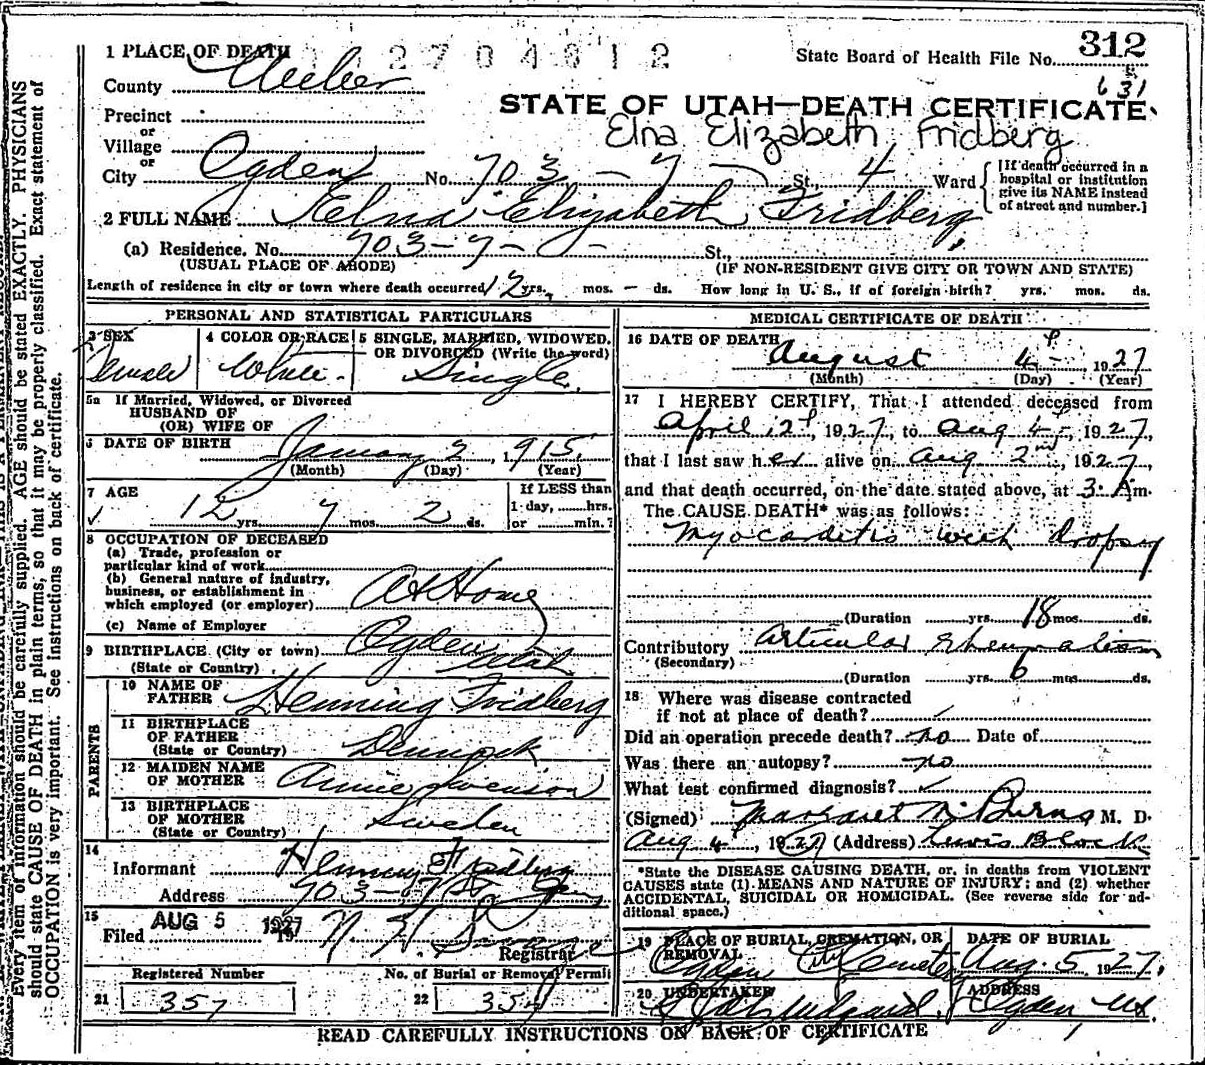 1 PLACE OF DEATH
2 7 0 4 3 1 2
State Board of Health File No. 312
County Weber
631
STATE OF UTAH—DEATH CERTIFICATE
Precinct
or
Elna Elizabeth Fridberg
Village
or
City Ogden No. 703 - 7 - St. 4 Ward
[If death occurred in a
hospital or institution
give its NAME instead
of street and number.]
2 FULL NAME Elna Elizabeth Fridberg
(a) Residence. No. 703 - 7 - St.,
(USUAL PLACE OF ABODE) (IF NON-RESIDENT GIVE CITY OR TOWN AND STATE)
Length of residence in city or town where death occurred 12 yrs. mos. - ds. How long in U. S., if of foreign birth? yrs. mos. ds.
PERSONAL AND STATISTICAL PARTICULARS
3 SEX
Female
4 COLOR OR RACE
White
5 SINGLE, MARRIED, WIDOWED,
OR DIVORCED (Write the word)
Single
5a If Married, Widowed, or Divorced
HUSBAND OF
(OR) WIFE OF
6 DATE OF BIRTH January 2, 1915
(Month) (Day) (Year)
7 AGE
12 yrs. 7 mos. 2 ds.
If LESS than
1 day, ......hrs.
or ......min.?
8 OCCUPATION OF DECEASED
(a) Trade, profession or
particular kind of work
(b) General nature of industry,
business, or establishment in
which employed (or employer) At Home
(c) Name of Employer
9 BIRTHPLACE (City or town) Ogden
(State or Country) Utah
PARENTS
10 NAME OF
FATHER Henning Fridberg
11 BIRTHPLACE
OF FATHER
(State or Country) Denmark
12 MAIDEN NAME
OF MOTHER Annie Swenson
13 BIRTHPLACE
OF MOTHER
(State or Country) Sweden
14
Informant Henning Fridberg
Address 703-7 St.
15
Filed AUG 5 1927
Registrar
Registered Number
21 357
No. of Burial or Removal Permit
22 357
MEDICAL CERTIFICATE OF DEATH
16 DATE OF DEATH
August 4 1927
(Month) (Day) (Year)
17 I HEREBY CERTIFY, That I attended deceased from
April , 1927, to Aug 4, 1927,
that I last saw her alive on Aug 2nd, 1927,
and that death occurred, on the date stated above, at 3 Am.
The CAUSE DEATH* was as follows:
Myocarditis with dropsy
(Duration yrs. 18 mos. ds.
Contributory Articular Rheumatism
(Secondary)
(Duration yrs. 6 mos. ds.
18 Where was disease contracted
if not at place of death?
Did an operation precede death? no Date of
Was there an autopsy? no
What test confirmed diagnosis?
(Signed) Margaret McBurns M. D.
Aug 4, 1927 (Address) Lewis Block
*State the DISEASE CAUSING DEATH, or, in deaths from VIOLENT
CAUSES state (1) MEANS AND NATURE OF INJURY; and (2) whether
ACCIDENTAL, SUICIDAL OR HOMICIDAL. (See reverse side for ad-
ditional space.)
19 PLACE OF BURIAL, CREMATION, OR
REMOVAL
Ogden City Cemetery
DATE OF BURIAL
Aug. 5 1927
20 UNDERTAKER
ADDRESS
Ogden Ut.
READ CAREFULLY INSTRUCTIONS ON BACK OF CERTIFICATE
Every item of information should be carefully supplied. AGE should be stated EXACTLY. PHYSICIANS
should state CAUSE OF DEATH in plain terms, so that it may be properly classified. Exact statement of
OCCUPATION is very important. See instructions on back of certificate.